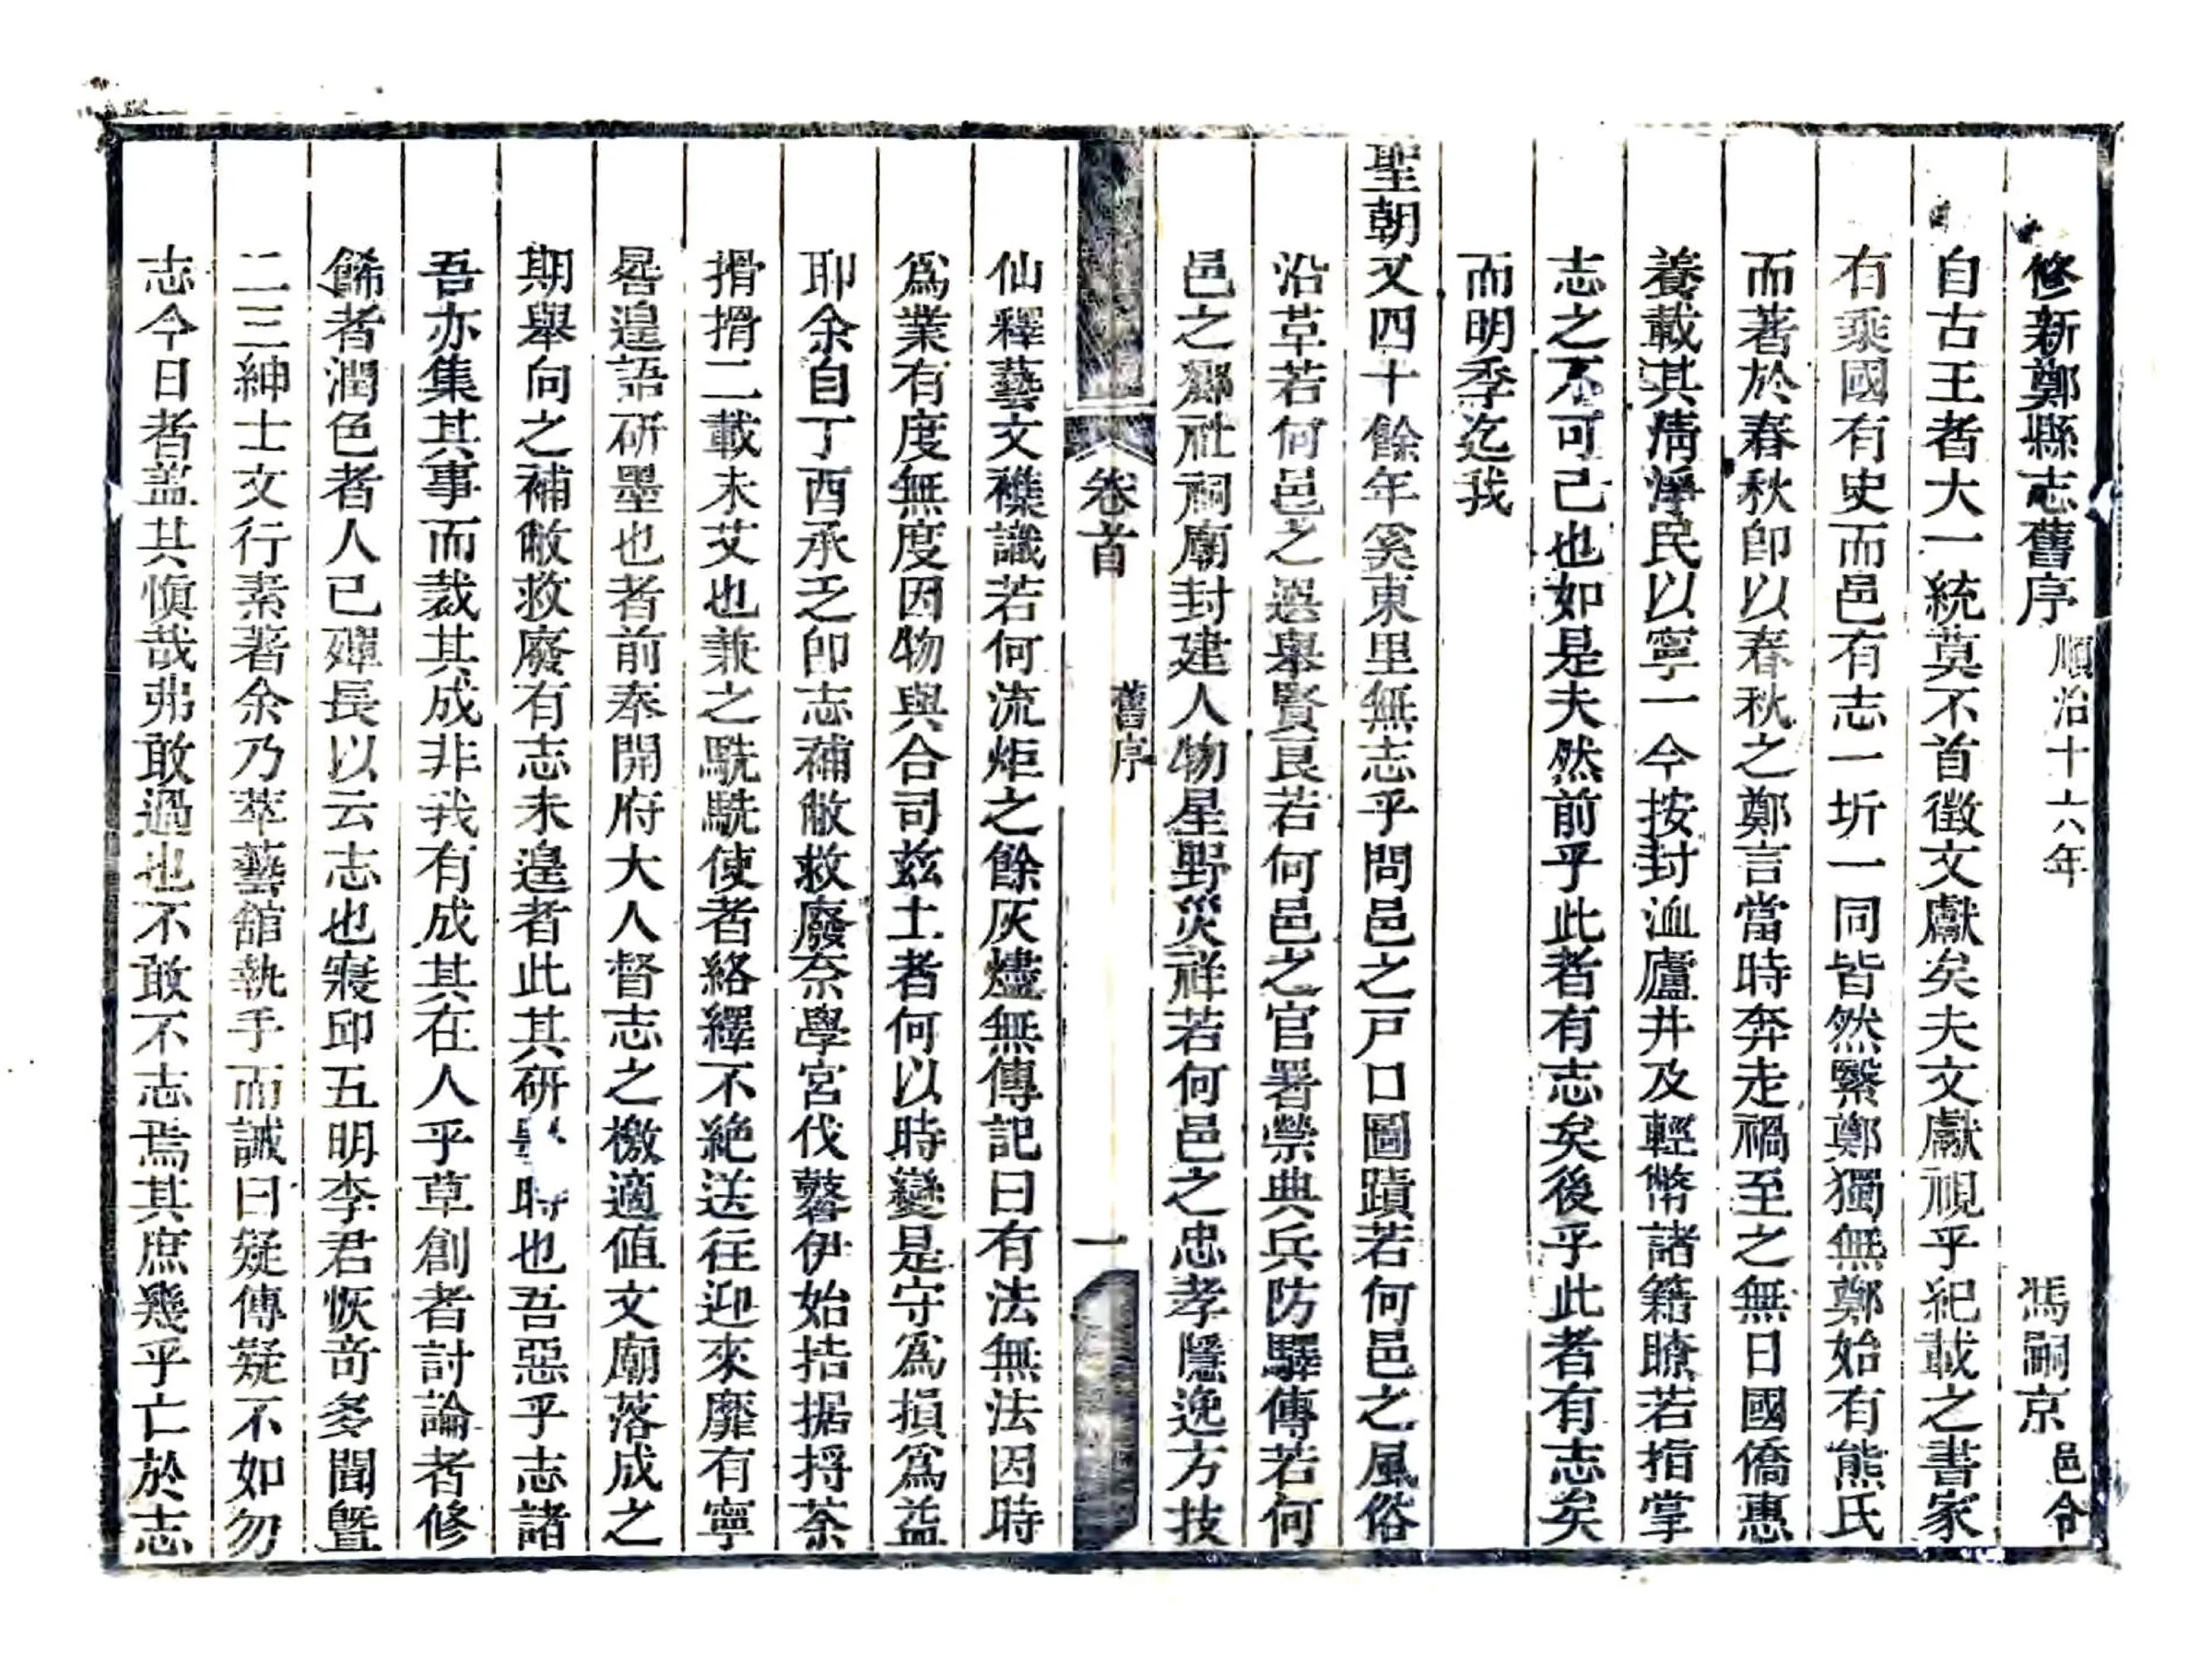 修新鄭縣志舊序 順治十六年 馮嗣京 邑令
自古王者大一統莫不首徵文獻矣夫文獻視乎紀載之書家
有乘國有史而邑有志一圻一同皆然繄鄭獨無鄭始有熊氏
而著於春秋卽以春秋之鄭言當時奔走禍至之無日國僑惠
養載其清淨民以寧一今按封洫廬井及輕幣諸籍瞭若指掌
志之不可已也如是夫然前乎此者有志矣後乎此者有志矣
而明季迄我
聖朝又四十餘年奚東里無志乎問邑之戸口圖蹟若何邑之風俗
沿革若何邑之選舉賢良若何邑之官署榮典兵防驛傳若何
邑之鄉社祠廟封建人物星野災祥若何邑之忠孝隱逸方技
卷首 舊序 一
仙釋藝文襍識若何流炬之餘灰燼無傳記曰有法無法因時
爲業有度無度因物與合司兹土者何以時變是守爲損爲益
耶余自丁酉承乏卽志補敝救廢奈學宮伐鼛伊始拮据捋荼
搰搰二載未艾也兼之駪駪使者絡繹不絶送往迎來靡有寧
晷遑語研墨也者前奉開府大人督志之檄適值文廟落成之
期舉向之補敝救廢有志未遑者此其研時也吾惡乎志諸
吾亦集其事而裁其成非我有成其在人乎草創者討論者修
餙者潤色者人已殫長以云志也寢邱五明李君恢奇多聞曁
二三紳士文行素著余乃萃藝舘執手而誡曰疑傳疑不如勿
志今日者盖其愼哉弗敢過也不敢不志焉其庶幾乎亡於志